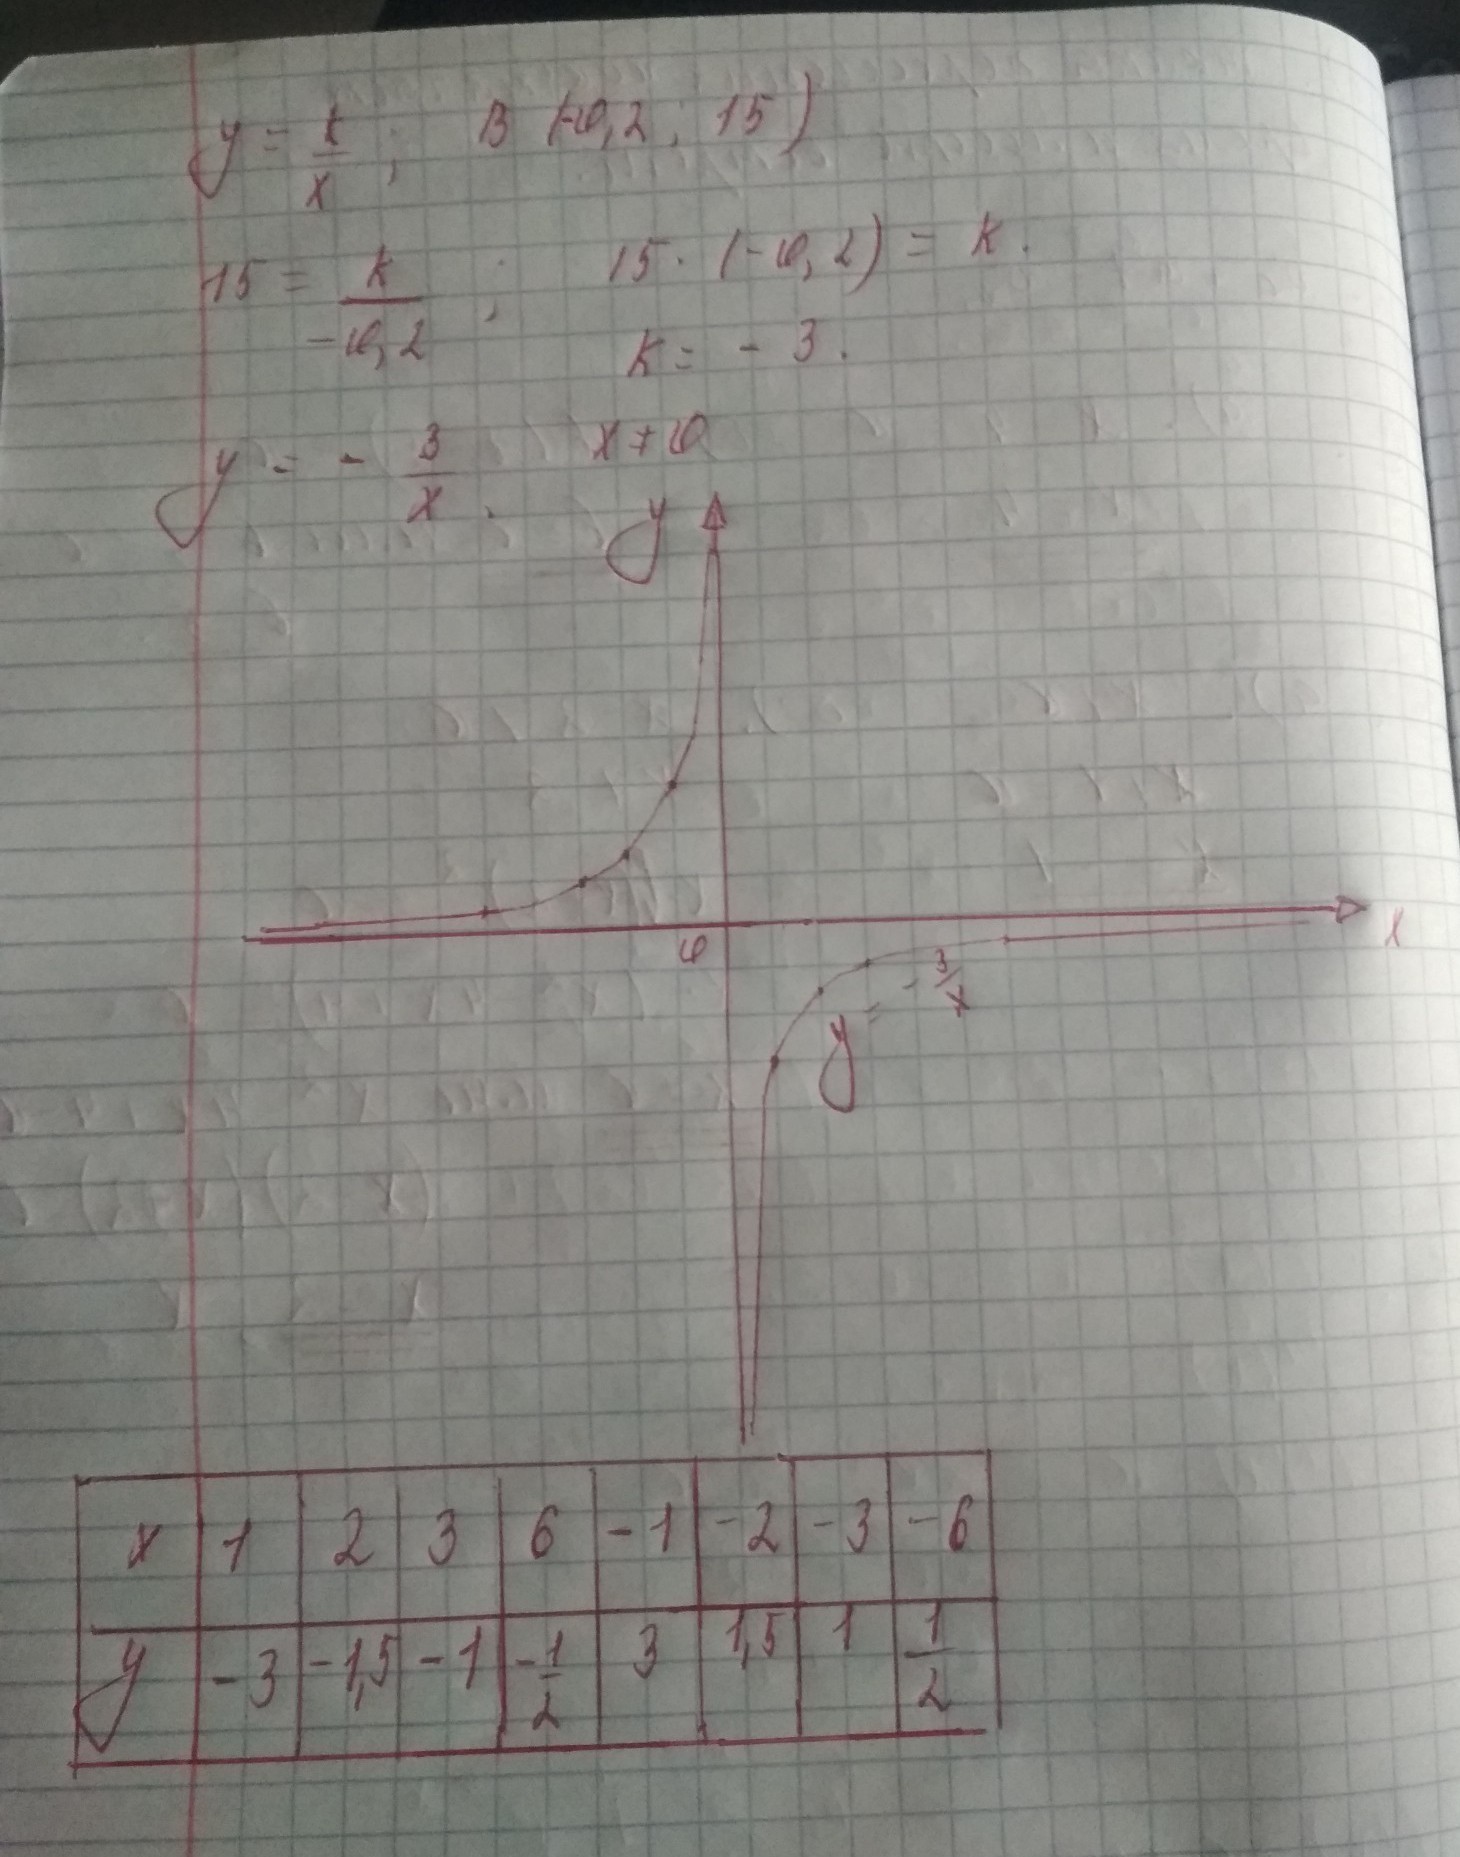 y = k/x ; B (-0,2 ; 15)
15 = k/-0,2 ; 15 · (-0,2) = k.
k = - 3.
y = - 3/x . x ≠ 0
y
0
x
y = - 3/x
x 1 2 3 6 -1 -2 -3 -6
y -3 -1,5 -1 -1/2 3 1,5 1 1/2